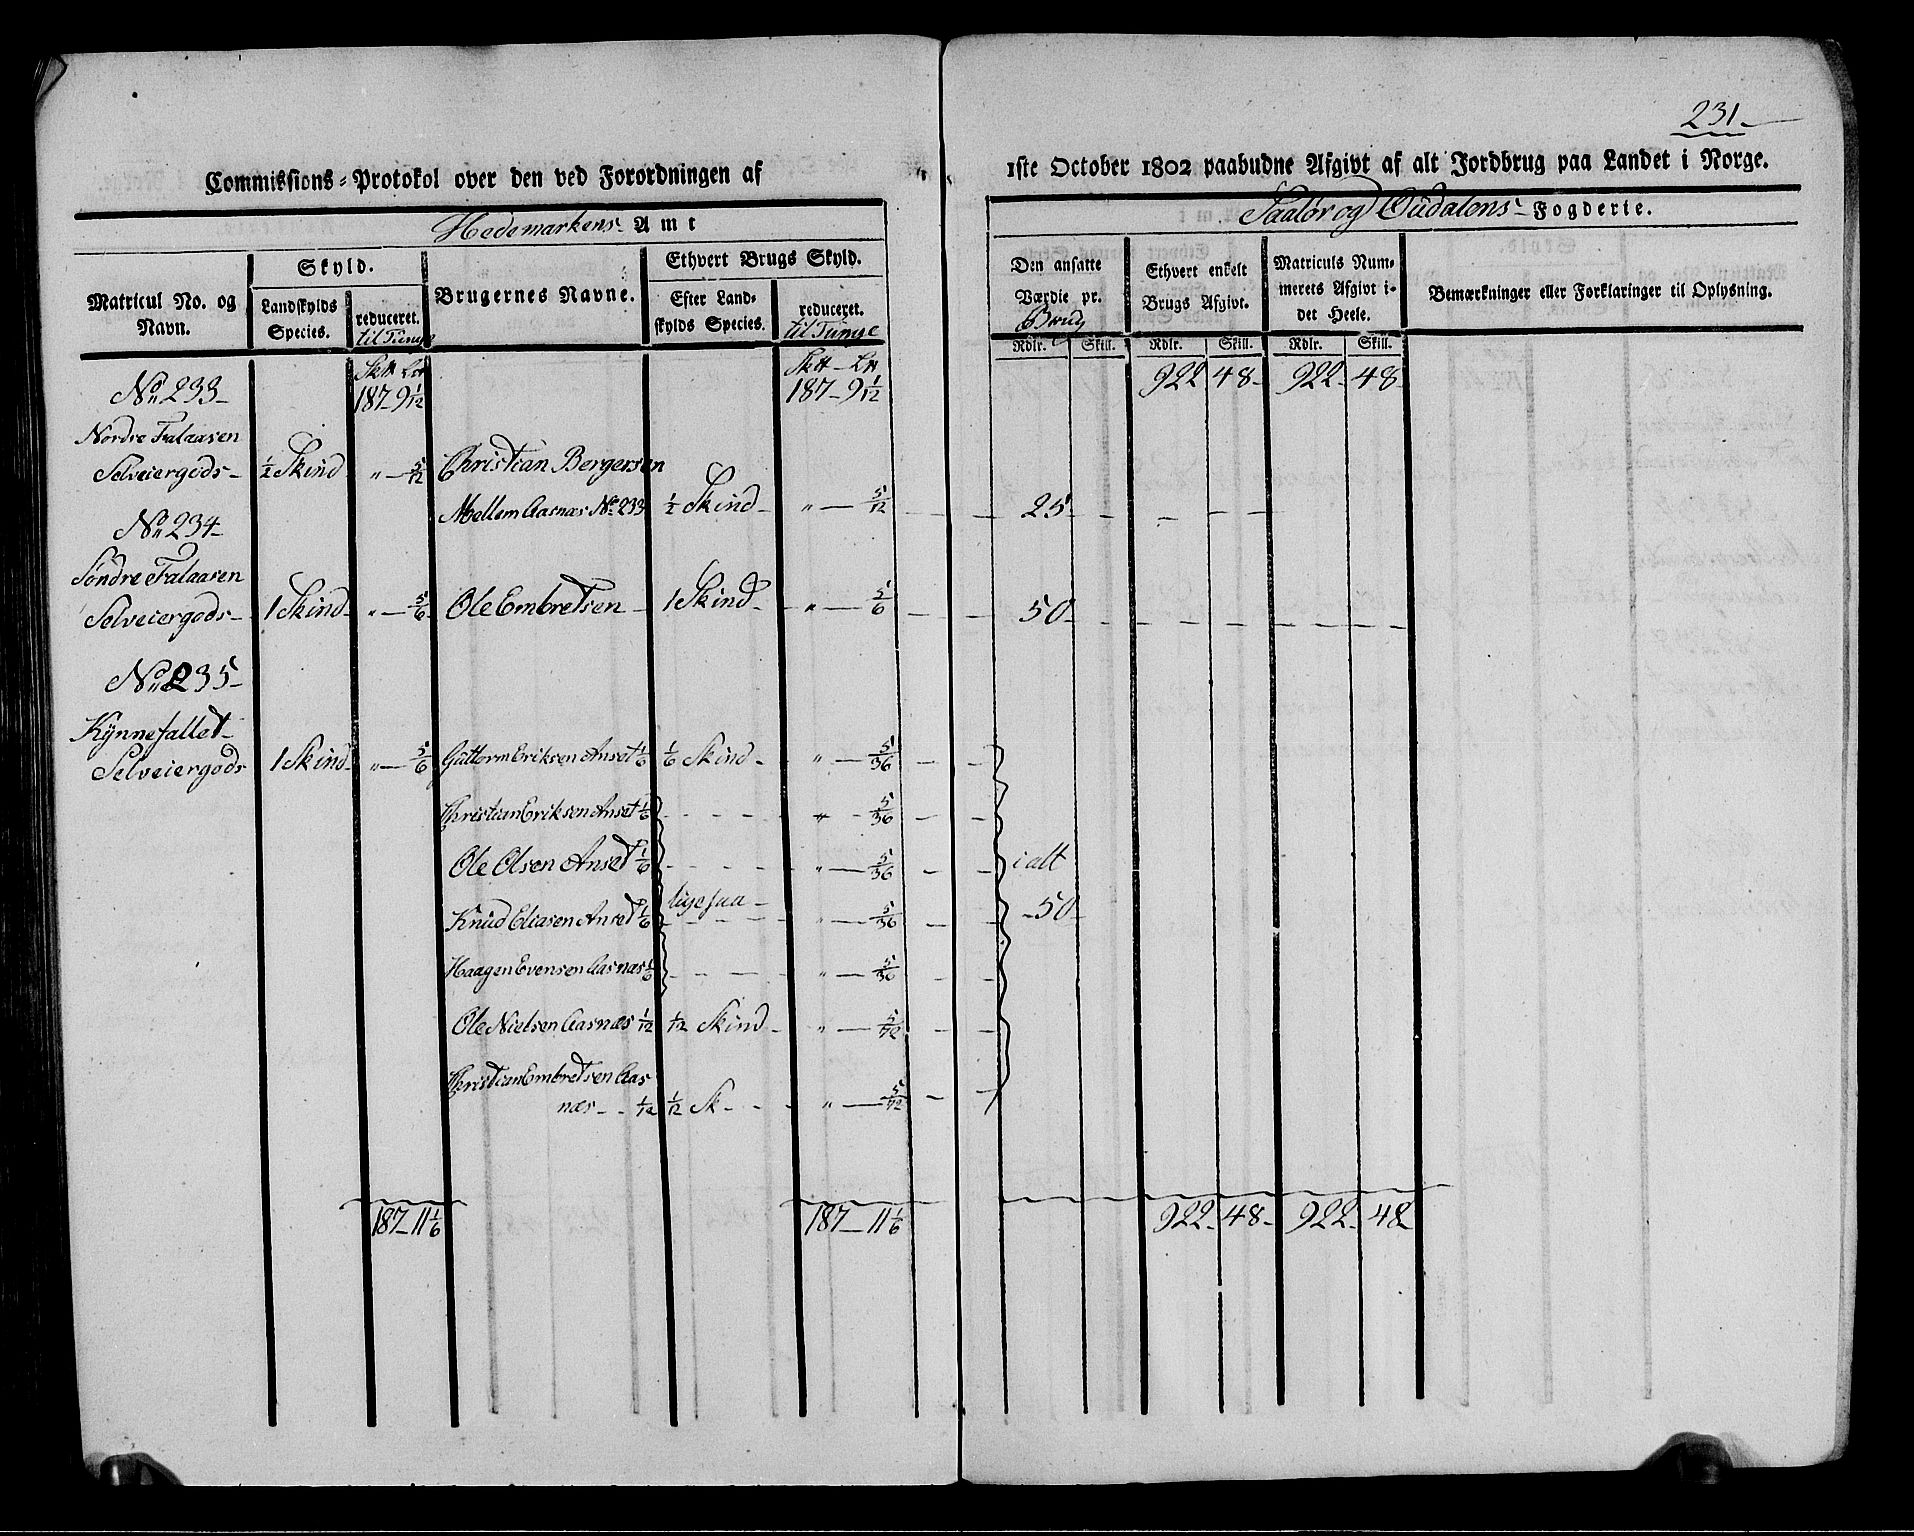 231
Commissions-Protokol over den ved Forordningen af
1ste October 1802 paabudne Afgivt af alt Jordbrug paa Landet i Norge.
Hedemarkens Amt
Soløer og Oudalens Fogderie.
Matricul No. og Navn.
Skyld.
Landskylds Species.
reduceret. til Tunge
Brugernes Navne.
Ethvert Brugs Skyld.
Efter Landskylds Species.
reduceret. til Tunge
Den ansatte Værdie pr. Brug
Ethvert enkelt Brugs Afgivt.
Matriculs Nummerets Afgivt idet Heele.
Bemærkninger eller Forklaringer til Oplysning.
Rdlr. Skill. Rdlr. Skill. Rdlr. Skill.
No 233 187 - 9 1/12 187 - 9 1/12 922 48 922 48
Nordre Falaasen
Selveiergods 1/2 Skind " 5/12 Christian Bergersen
Mellem Aasnæs No 233 1/2 Skind " 5/12 25
No 234
Søndre Falaasen
Selveiergods 1 Skind " 5/6 Ole Embretsen 1 Skind " 5/6 50
No 235
Kynnefallet
Selveiergods 1 Skind " 5/6 Guttorm Eriksen Anset 1/6 1/6 Skind " 5/36
Christian Eriksen Anset 1/6 " 5/36
Ole Olsen Anset 1/6 " 5/36 i alt
Knud Eliasen Anset 1/6 ligesaa " 5/36 50
Haagen Evensen Aasnæs 1/6 " 5/36
Ole Nielsen Aasnæs 1/12 1/12 Skind " 5/72
Christian Embretsen Aas
næs 1/12 1/12 Sk " 5/72
187 - 11 1/6 187 - 11 1/6 922 48 922 48